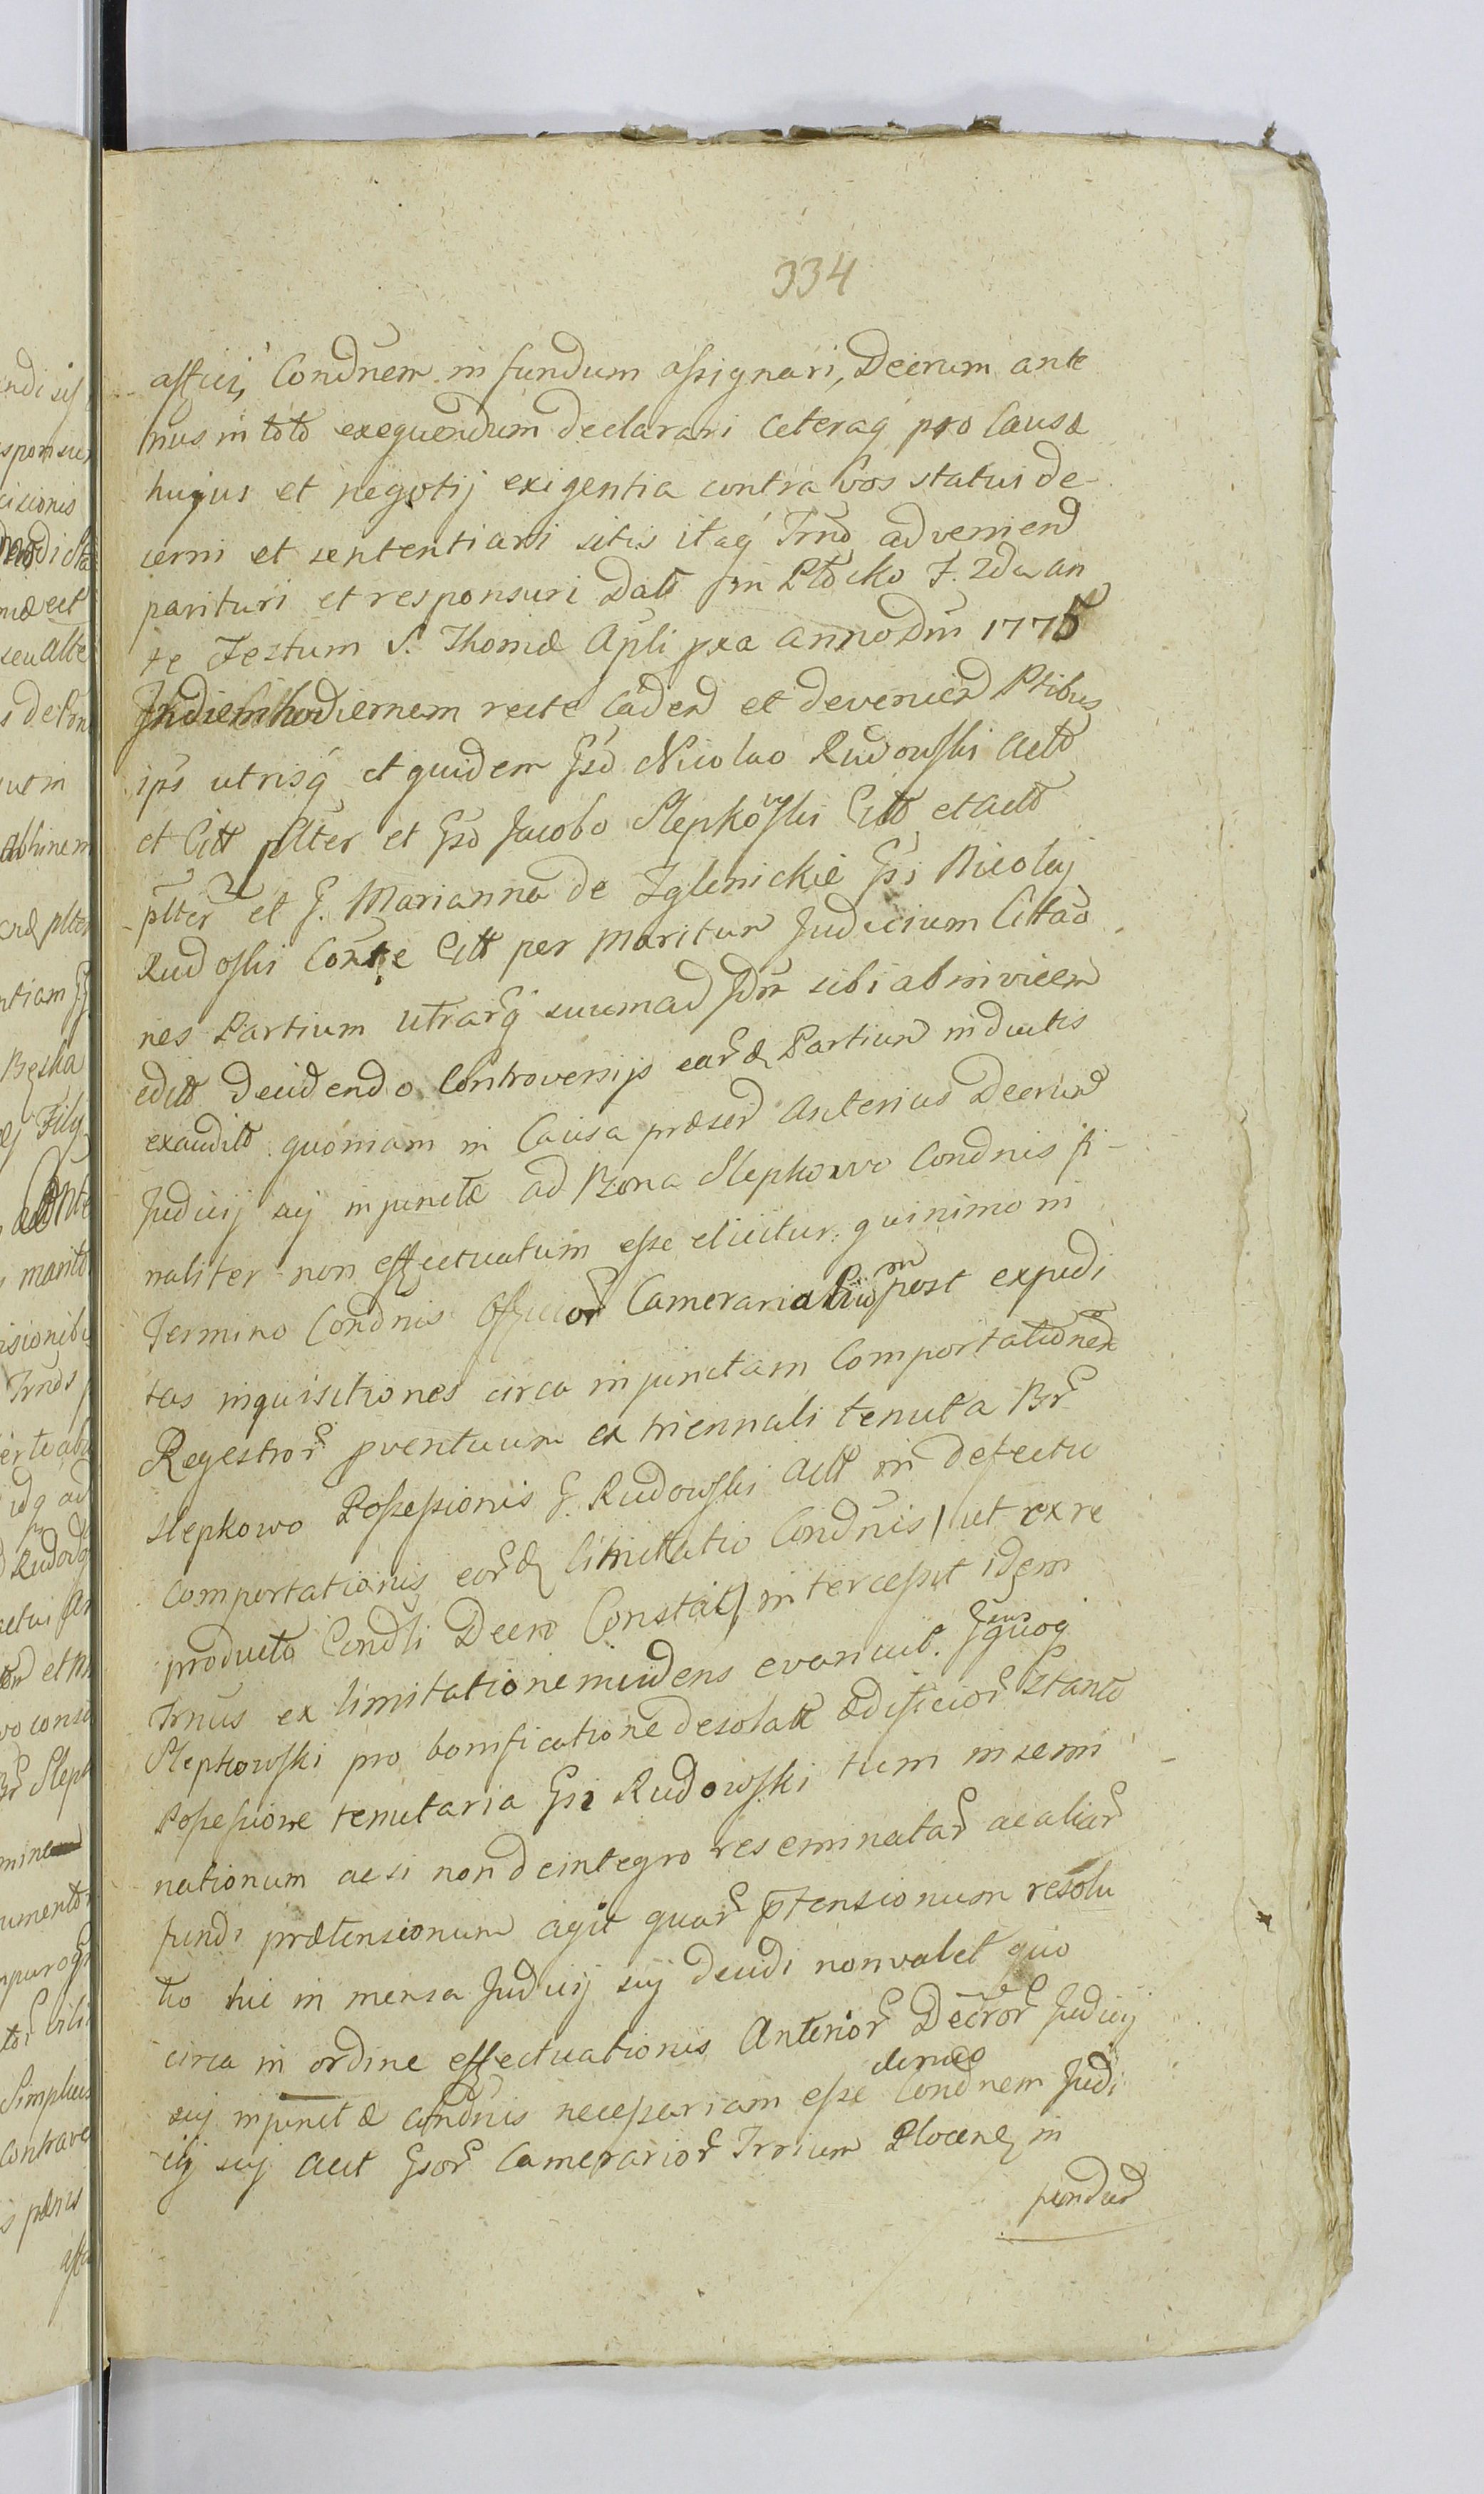 334
affici, Condnem in fundum assignari, Decrum ante
rius in toto exequendum declarari ceteraq pro Causæ
hujus et negotij exigentia contra Vos statui de-
cerni et sententiari sitis itaq Trno advenien
parituri et responsuri Datt in Płocko F. 2da an
te Festum S. Thomæ Apli pxa anno Dni 1775
In diem hodiernem recte Caden et devenien Ptibus
ips utrisq et quidem Gso Nicolao Rudowski Actt
et Citt plter et Gso Jacobo Slepkowski Citt et Actt
plter et G. Marianna de Zglenickie Gsi Nicolaj
Rudoski Conte Citt per maritum Judicium Cittao
nes Partium utrarq suum ad Jdm sibi abinvicem
editt decidendo Controversijs ear Partium inductis
exauditt quoniam in Causa præsen Anterius Decrum
Judicij suj injunctæ ad Bona Slepkowo Condnis fi-
naliter non effectuatum esse elicitur, quinimo in
Termino Condnis Officior Camerarialium post expedi
tas inquisitiones circa injunctam Comportationem
Regestror pventuum ex triennali tenuta Br
Slepkowo Possessionis G. Rudowski Actt in defectu
comportationis eor limitatio Condnis ut ex re
producto Condli Decro Constat intercessit idem
Trnus ex limitatione incidens evanuit. Gsus quoq
Slepkowski pro bonificatione desolatt ædificior Stante
Possessione tenutaria Gsi Rudowski tum insemi
nationum ac si non de integro reseminatar ac aliar
fundi prætensionum agit quar ptensionum resolu
tio hic in mensa Judicij suj decidi non valet quo
circa in ordine effectuationis Anterior Decror Judicij
suj injunctæ Condnis necessariam esse denuo Condnem Judi
cij suj Actt Gsor Camerarior Trrium Plocen in
fundum